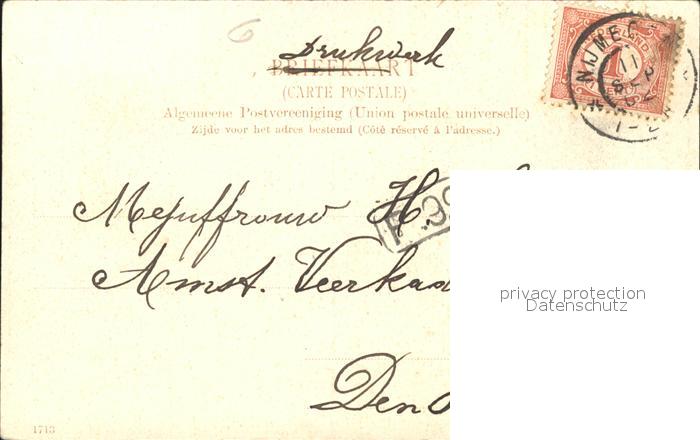 6
Drukwerk
BRIEFKAART
(CARTE POSTALE)
Algemeene Postvereeniging (Union postale universelle)
Zijde voor het adres bestemd (Côté réservé à l'adresse.)
NIJMEG
11
SEP
Mejuffrouw H.
Amst. Veerkad
Den
privacy protection
Datenschutz
1713